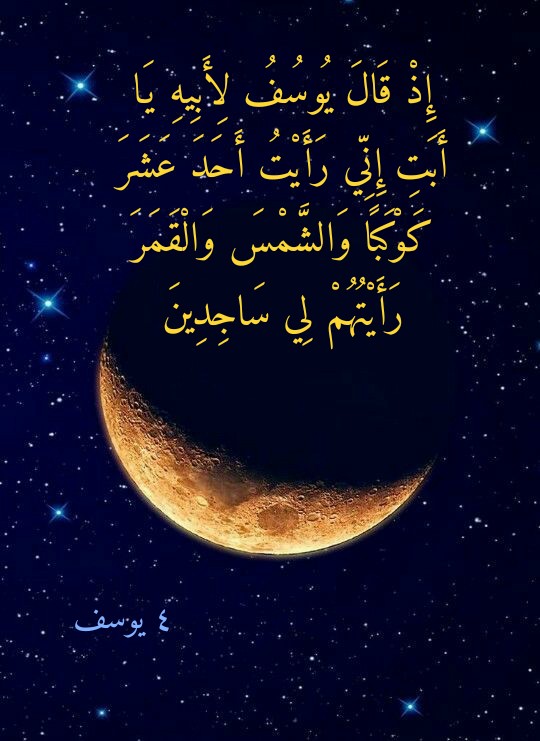 إِذْ قَالَ يُوسُفُ لِأَبِيهِ يَا
أَبَتِ إِنِّي رَأَيْتُ أَحَدَ عَشَرَ
كَوْكَبًا وَالشَّمْسَ وَالْقَمَرَ
رَأَيْتُهُمْ لِي سَاجِدِينَ
٤ يوسف